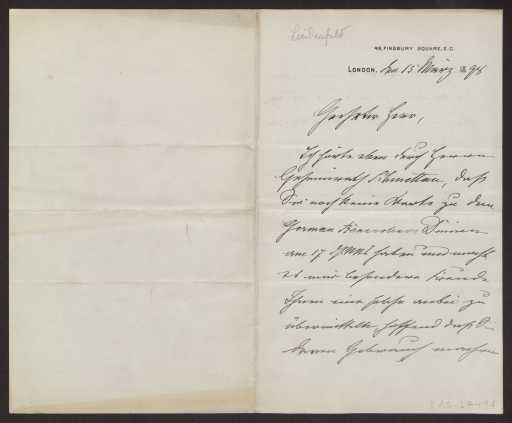 Lindenfeld
49, FINSBURY SQUARE, E.C.
LONDON, den 15 März 1898
Geehrter Herr,
Ich hörte eben durch Herrn
Geheimrath Schmettau, daß
Sie noch keine Karte zu dem
German Dinner
am 17 haben und macht
es mir besondere Freude
Ihnen eine solche anbei zu
übermitteln hoffend daß Sie
davon Gebrauch machen